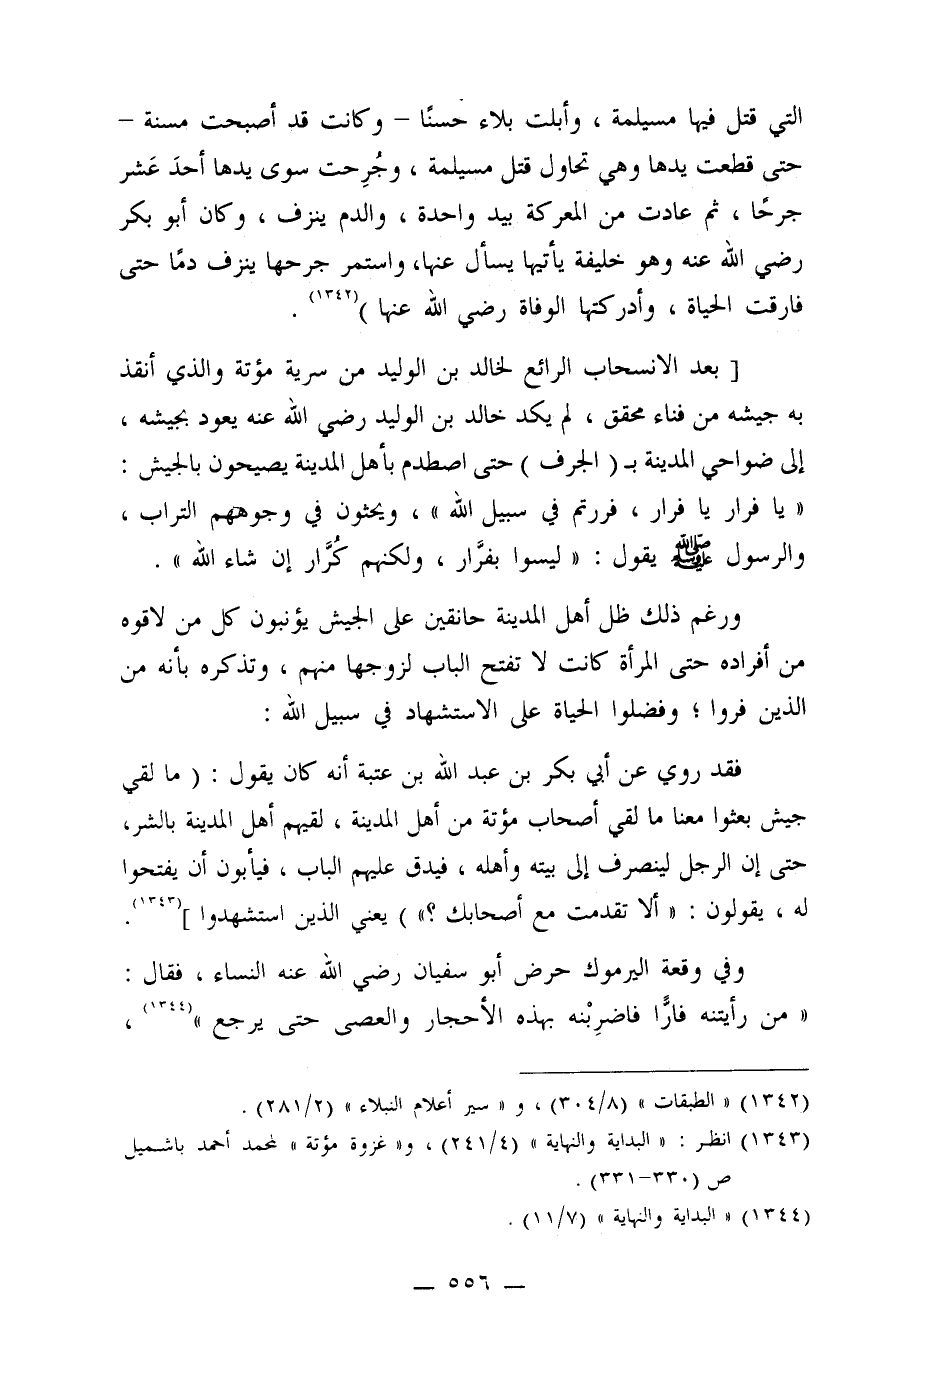 التي قتل فيها مسيلمة ، وأبلت بلاء حسنًا – وكانت قد أصبحت مسنة –
حتى قطعت يدها وهي تحاول قتل مسيلمة ، وجُرِحت سوى يدها أحدَ عَشر
جرحًا ، ثم عادت من المعركة بيد واحدة ، والدم ينزف ، وكان أبو بكر
رضي الله عنه وهو خليفة يأتيها يسأل عنها، واستمر جرحها ينزف دمًا حتى
فارقت الحياة ، وأدركتها الوفاة رضي الله عنها )(١٣٤٢) .
[ بعد الانسحاب الرائع لخالد بن الوليد من سرية مؤتة والذي أنقذ
به جيشه من فناء محقق ، لم يكد خالد بن الوليد رضي الله عنه يعود بجيشه ،
إلى ضواحي المدينة بـ ( الجرف ) حتى اصطدم بأهل المدينة يصيحون بالجيش :
« يا فرار يا فرار ، فررتم في سبيل الله » ، ويحثون في وجوههم التراب ،
والرسول ﷺ يقول : « ليسوا بفرَّار ، ولكنهم كُرَّار إن شاء الله » .
ورغم ذلك ظل أهل المدينة حانقين على الجيش يؤنبون كل من لاقوه
من أفراده حتى المرأة كانت لا تفتح الباب لزوجها منهم ، وتذكره بأنه من
الذين فروا ؛ وفضلوا الحياة على الاستشهاد في سبيل الله :
فقد روي عن أبي بكر بن عبد الله بن عتبة أنه كان يقول : ( ما لقي
جيش بعثوا معنا ما لقي أصحاب مؤتة من أهل المدينة ، لقيهم أهل المدينة بالشر،
حتى إن الرجل لينصرف إلى بيته وأهله ، فيدق عليهم الباب ، فيأبون أن يفتحوا
له ، يقولون : « ألا تقدمت مع أصحابك ؟» ) يعني الذين استشهدوا ](١٣٤٣).
وفي وقعة اليرموك حرض أبو سفيان رضي الله عنه النساء ، فقال :
« من رأيتنه فارًّا فاضرِبْنه بهذه الأحجار والعصى حتى يرجع »(١٣٤٤) ،
(١٣٤٢) « الطبقات » (٣٠٤/٨) ، و « سير أعلام النبلاء » (٢٨١/٢) .
(١٣٤٣) انظر : « البداية والنهاية » (٢٤١/٤) ، و« غزوة مؤتة » لمحمد أحمد باشميل
ص (٣٣٠–٣٣١) .
(١٣٤٤) « البداية والنهاية » (١١/٧) .
— ٥٥٦ —